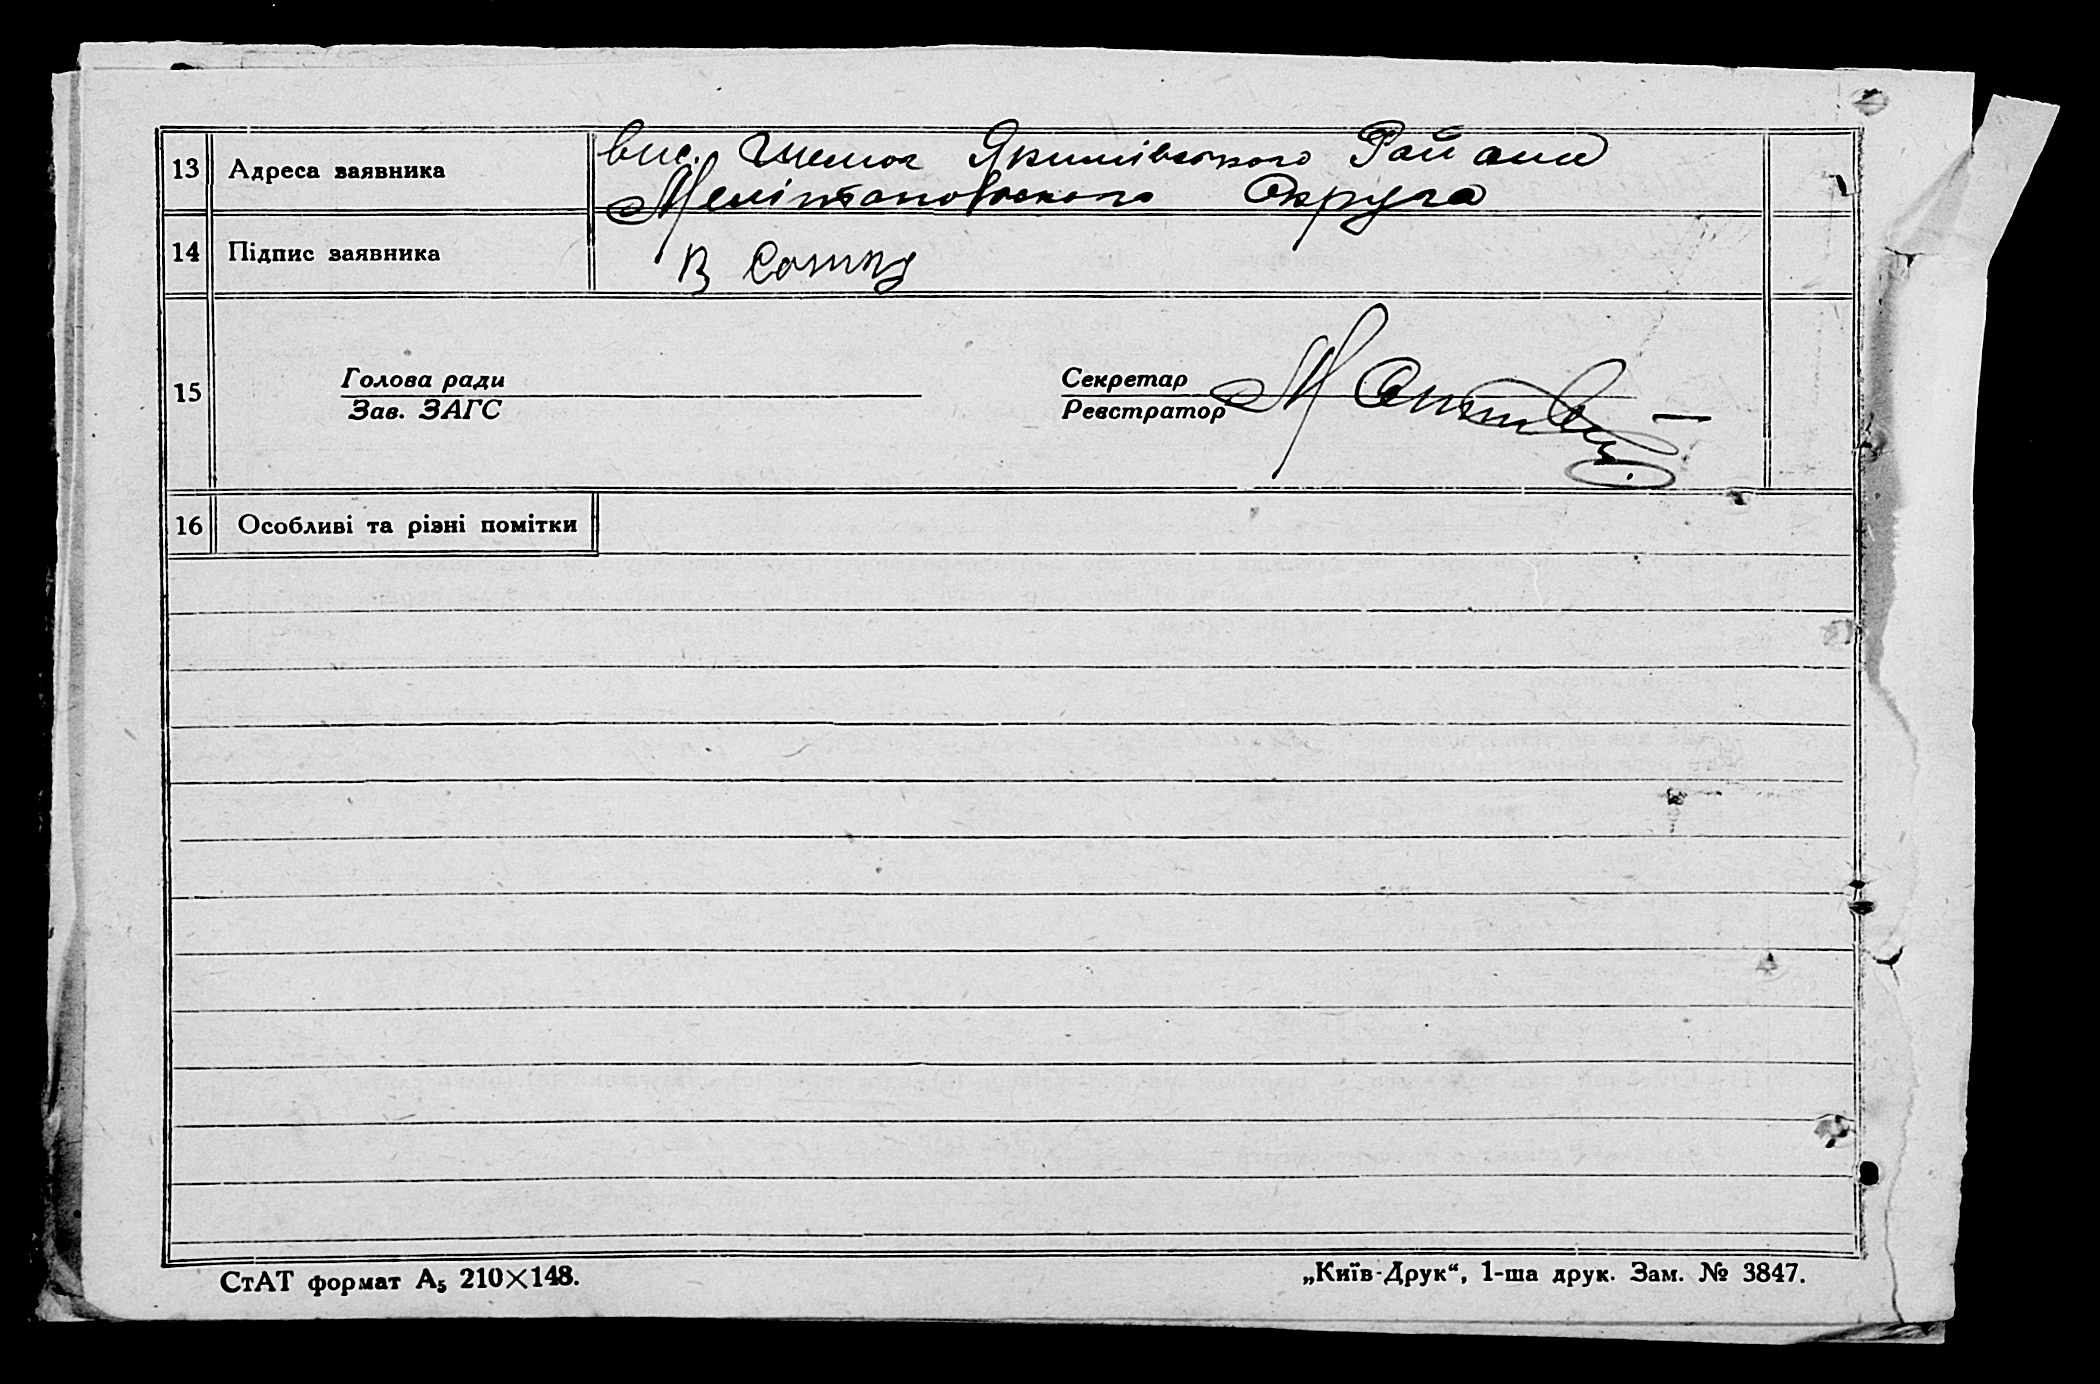 13 Адреса заявника вис. Якимівського Району
Мелітопольского Округа
14 Підпис заявника В
15
Голова ради
Зав. ЗАГС
Секретар
Реєстратор М
16 Особливі та різні помітки
СтАТ формат А₅ 210×148.
„Київ-Друк“, 1-ша друк. Зам. № 3847.